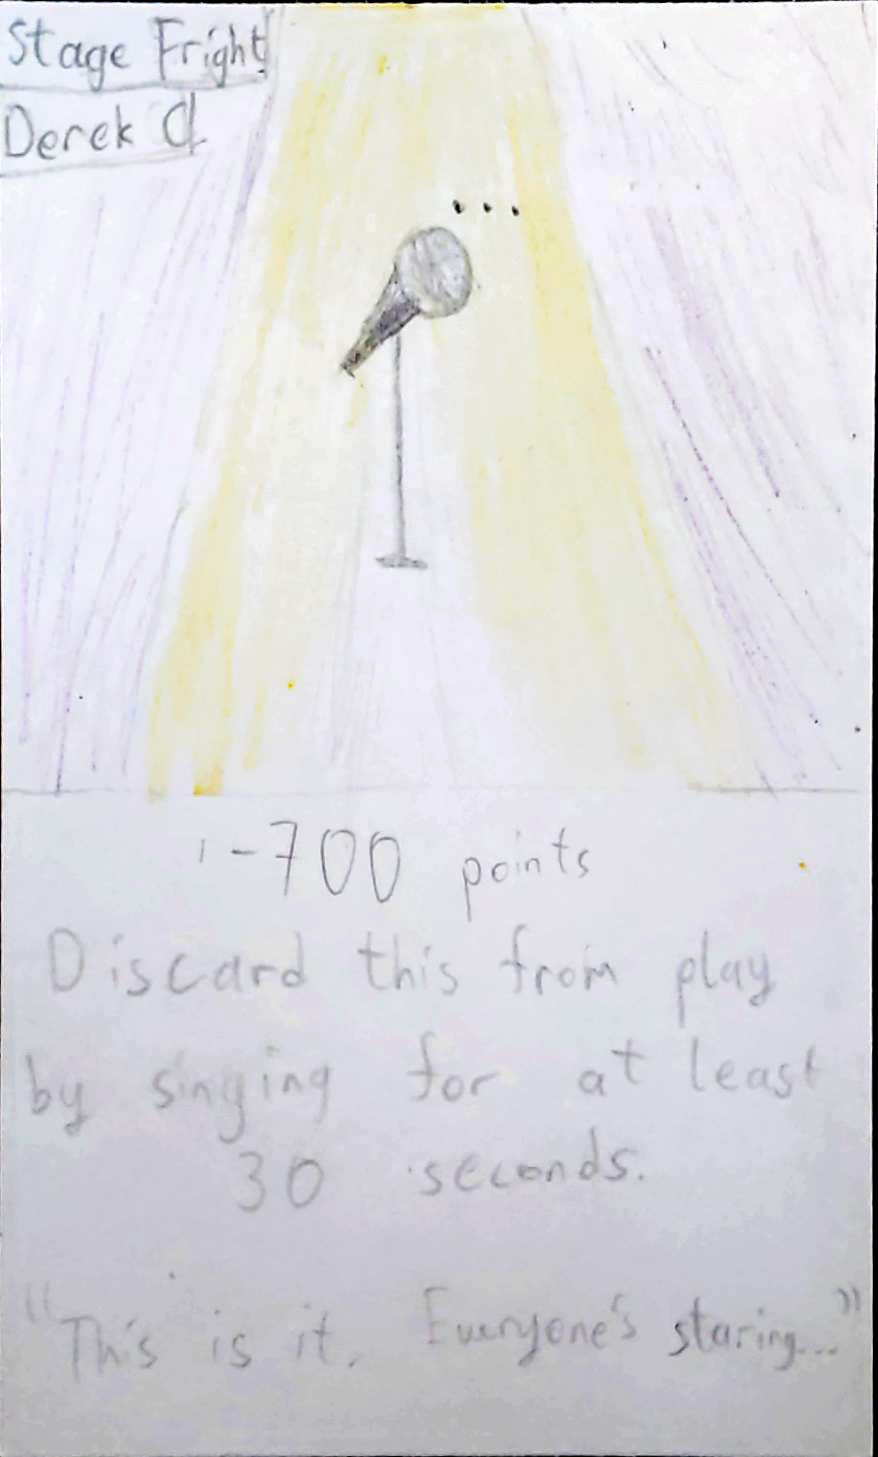 Stage Fright
Derek C
...
-700 points
Discard this from play
by singing for at least
30 seconds.
"This is it. Everyone's staring..."